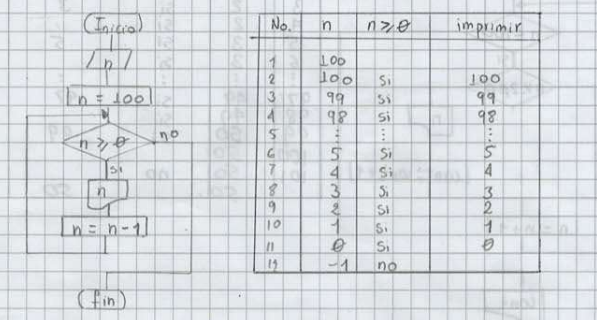 (Inicio)
n
n = 100
n ≥ 0 no
si
n
n = n-1
(fin)
No. n n ≥ 0 imprimir
1 100
2 100 si 100
3 99 si 99
4 98 si 98
5 ⋮ si ⋮
6 5 si 5
7 4 si 4
8 3 si 3
9 2 si 2
10 1 si 1
11 0 si 0
12 -1 no